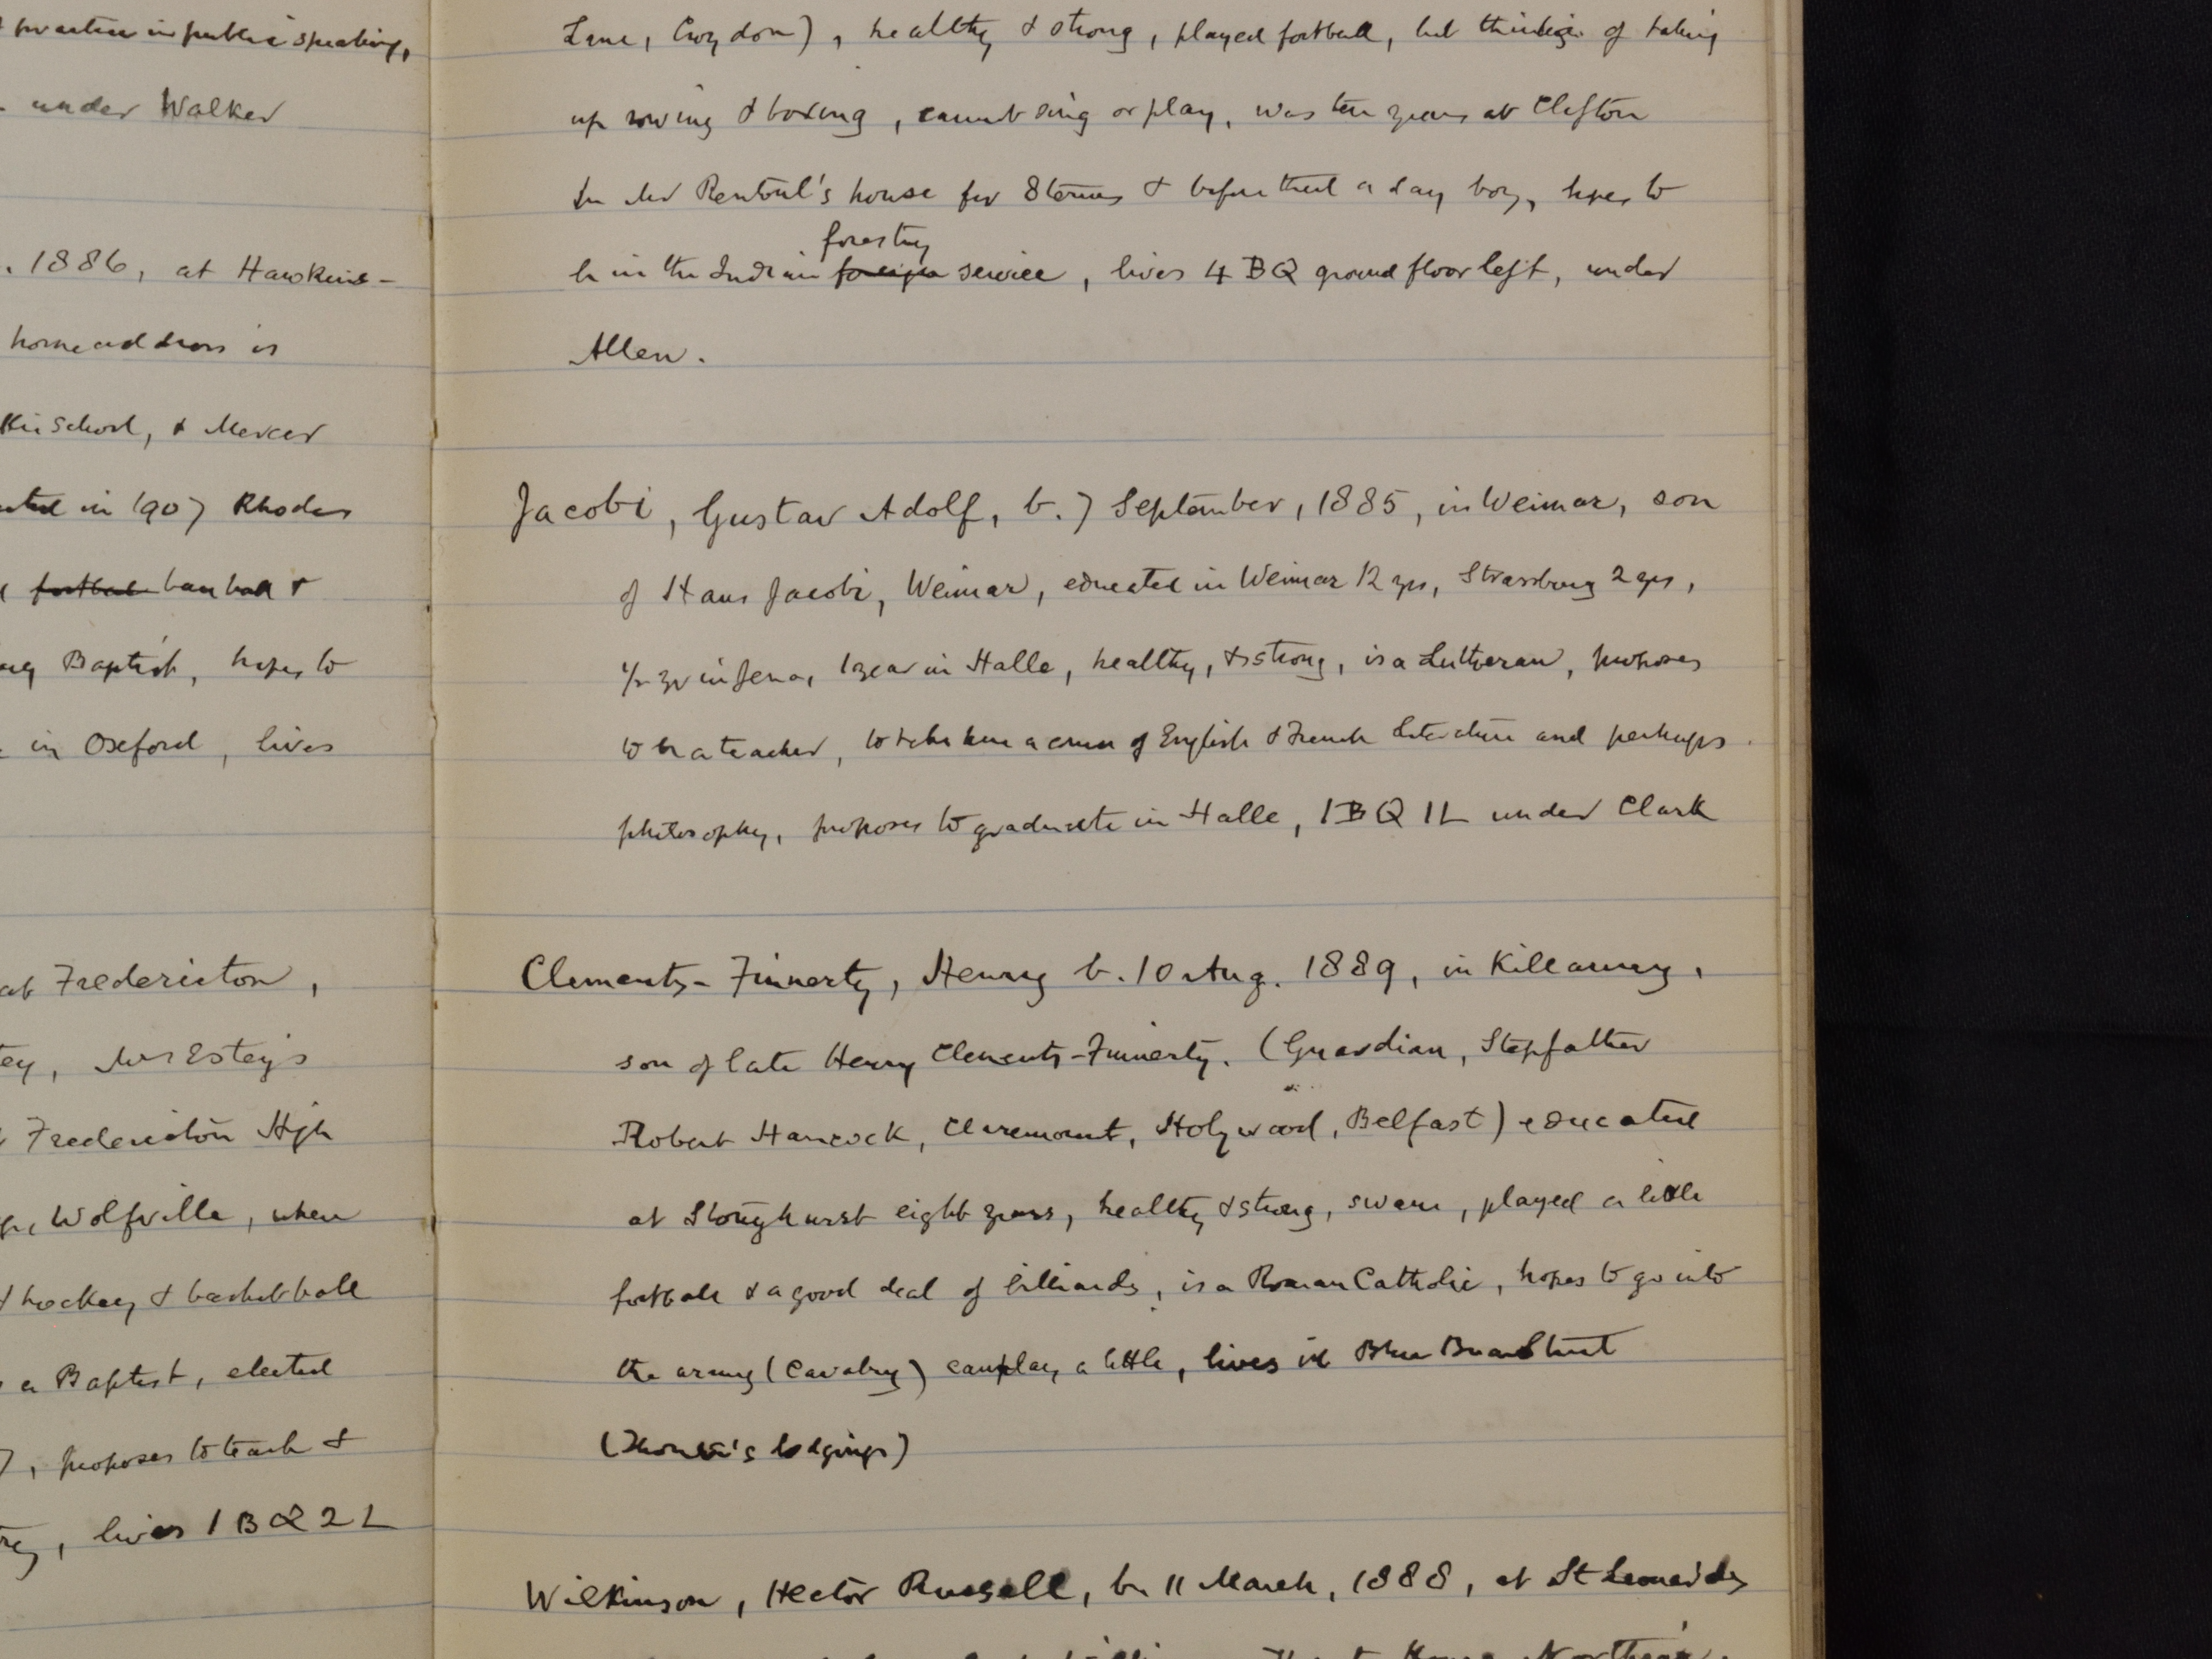 practice in public speaking,
under Walker
. 1886, at Hawkins-
home address is
Kin School, & Mercer
in 1907 Rhodes
football baseball &
Baptist, hopes to
in Oxford, lives
at Fredericton,
ey, Mrs Estey's
Fredericton High
Wolfville, when
hockey & basketball
a Baptist, elected
7, proposes to teach &
, lives 1 BQ 2 L
Lane, Croydon), healthy & strong, played football, but thinking of taking
up rowing & boxing, cannot sing or play, was ten years at Clifton
in Mr Rentoul's house for 8 terms & before that a day boy, hopes to
forestry
be in the Indian foreign service, lives 4 BQ ground floor left, under
Allen.
Jacobi, Gustav Adolf, b. 7 September, 1885, in Weimar, son
of Hans Jacobi, Weimar, educated in Weimar 12 yrs, Strassburg 2 yrs,
1/2 yr in Jena, 1 year in Halle, healthy, & strong, is a Lutheran, proposes
to be a teacher, to take here a course of English & French Literature and perhaps
philosophy, proposes to graduate in Halle, 1 BQ 1 L under Clark
Clements-Finnerty, Henry b. 10 Aug. 1889, in Killarney,
son of late Henry Clements-Finnerty. (Guardian, Stepfather
Robert Hancock, Claremount, Holywood, Belfast) educated
at Stonyhurst eight years, healthy & strong, swam, played a little
football & a good deal of billiards, is a Roman Catholic, hopes to go into
the army (Cavalry) can play a little, lives in Blue Boar Street
(lodgings)
Wilkinson, Hector Russell, b. 11 March, 1888, at St Leonards